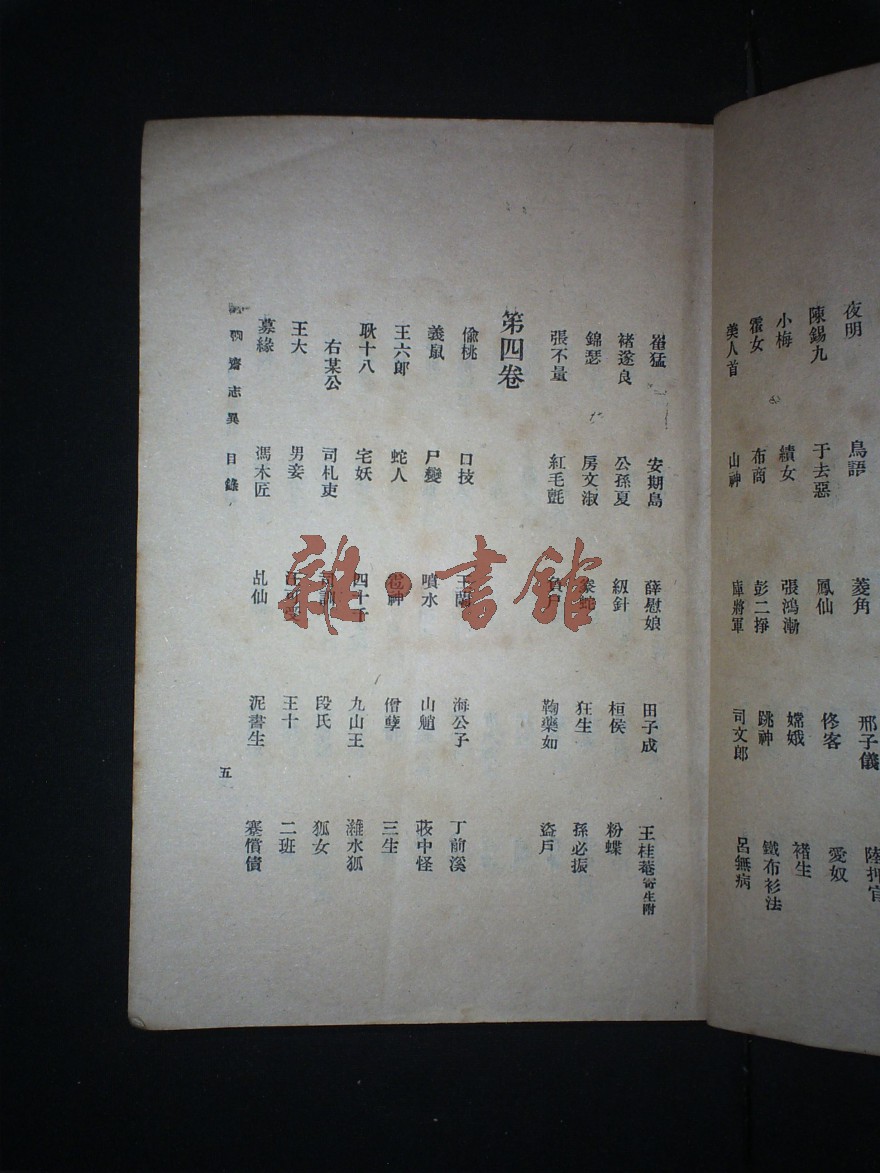 夜明 鳥語 菱角 邢子儀 陸押官
陳錫九 于去惡 鳳仙 佟客 愛奴
小梅 績女 張鴻漸 嫦娥 褚生
霍女 布商 彭二掙 跳神 鐵布衫法
美人首 山神 庫將軍 司文郎 呂無病
崔猛 安期島 薛慰娘 田子成 王桂菴寄生附
褚遂良 公孫夏 紉針 桓侯 粉蝶
錦瑟 房文淑 豢蛇 狂生 孫必振
張不量 紅毛氈 負尸 鞠藥如 盜戶
第四卷
偸桃 口技 王蘭 海公子 丁前溪
義鼠 尸變 噴水 山魈 荍中怪
王六郎 蛇人 雹神 僧孽 三生
耿十八 宅妖 四十千 九山王 濰水狐
右某公 司札吏 司訓 段氏 狐女
王大 男妾 汪可受 王十 二班
募緣 馮木匠 乩仙 泥書生 蹇償債
聊齋志異 目錄 五
雜·書館